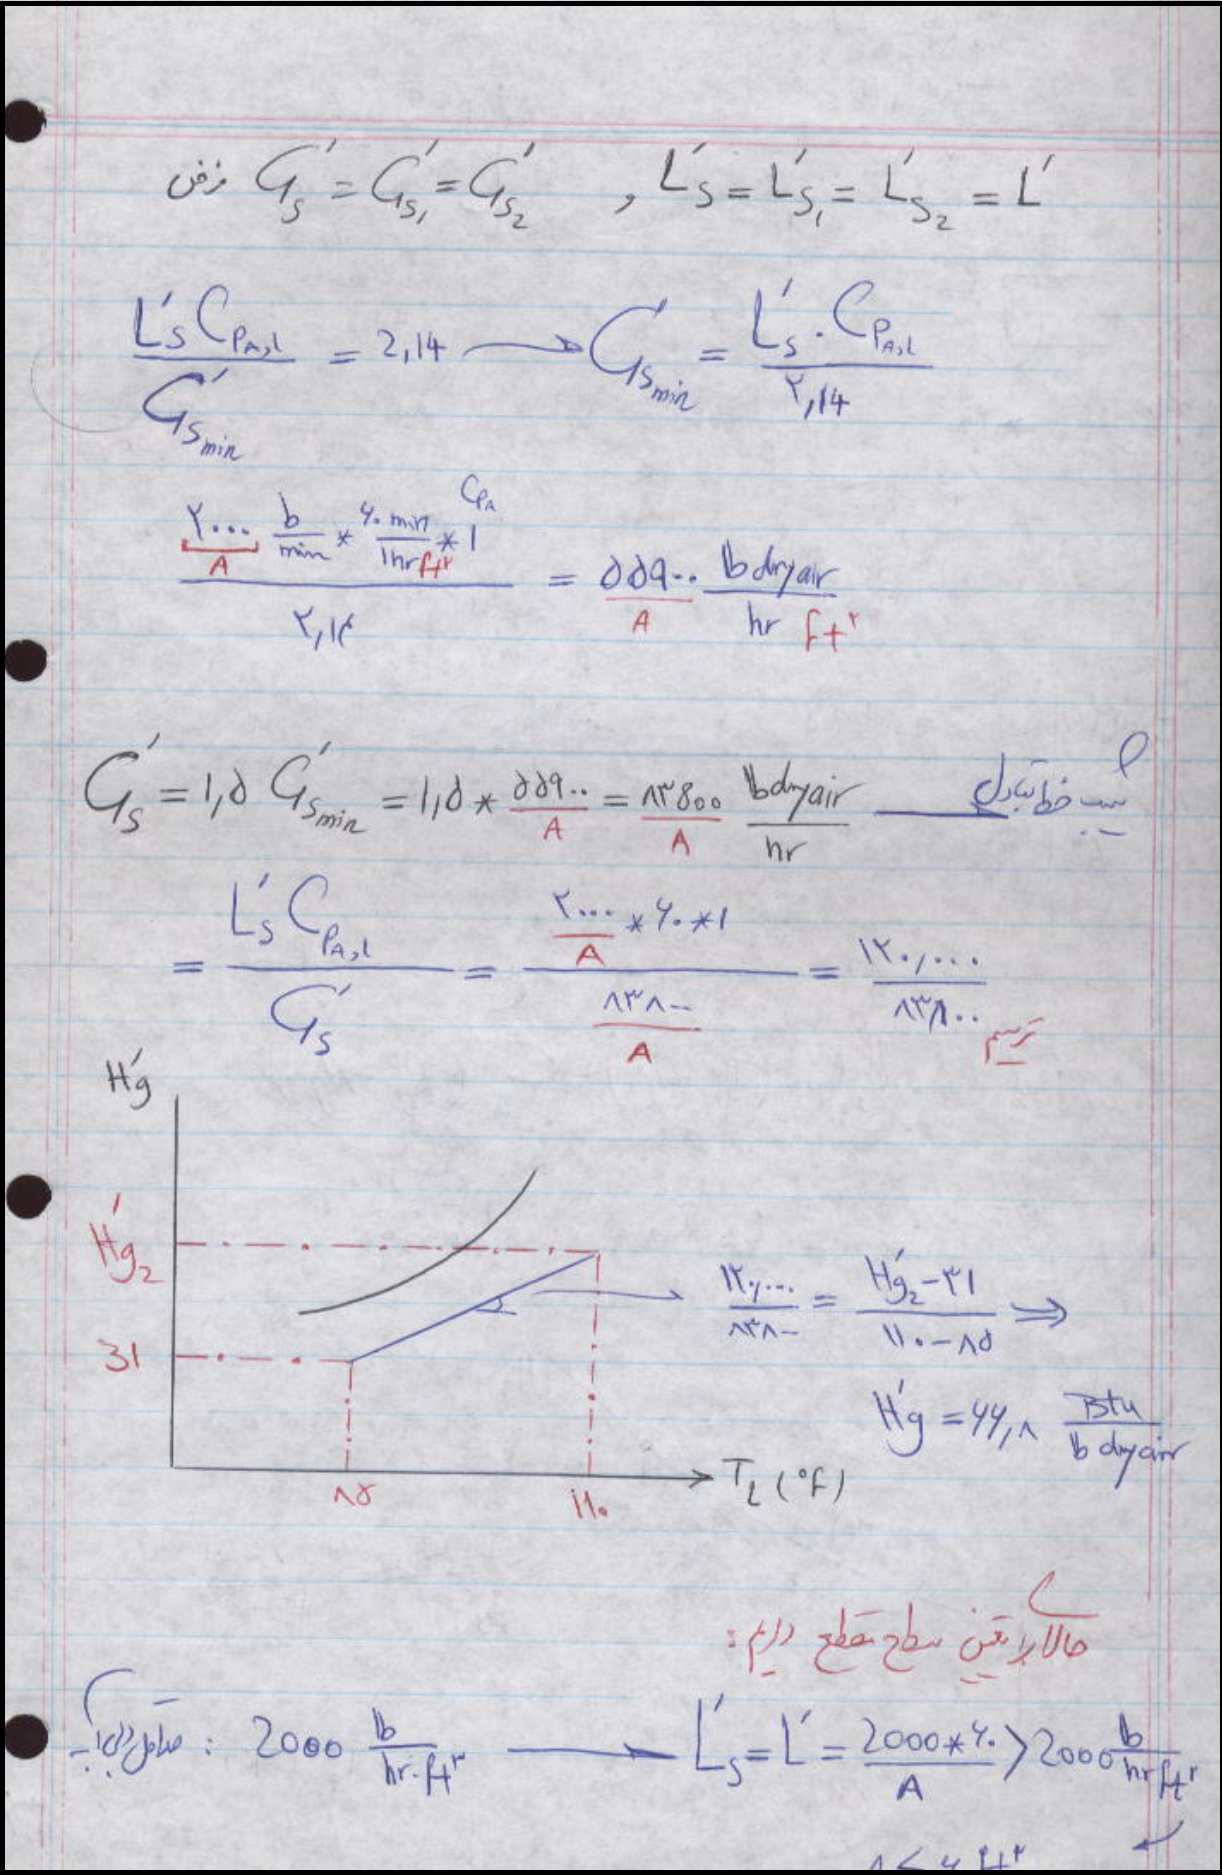 فرض G's = G's1 = G's2 , L's = L's1 = L's2 = L'
L's CpA,l / G's min = 2,14 → G's min = L's . CpA,l / ۲,14
(۲۰۰۰/A lb/min * ۶۰ min/1hr ft² * 1 CpA) / ۲,۱۴ = ۵۵۹۰۰/A lb dry air / hr ft²
G's = ۱,۵ G's min = ۱,۵ * ۵۵۹۰۰/A = ۸۳800/A lb dry air / hr → شیب خط تبادل
= L's CpA,l / G's = (۲۰۰۰/A * ۶۰ * ۱) / (۸۳۸۰۰/A) = ۱۲۰,۰۰۰ / ۸۳۸۰۰ ترسیم
H'g
H'g2
31
۸۵
۱۱۰
TL (°F)
۱۲۰,۰۰۰ / ۸۳۸۰۰ = (H'g2 - ۳۱) / (۱۱۰ - ۸۵) ⇒
H'g = ۶۶,۸ Btu / lb dry air
حالا برای تعیین سطح مقطع داریم :
حداقل دبی آب : 2000 lb / hr.ft² → L's = L' = 2000*۶۰ / A > 2000 lb / hr ft²